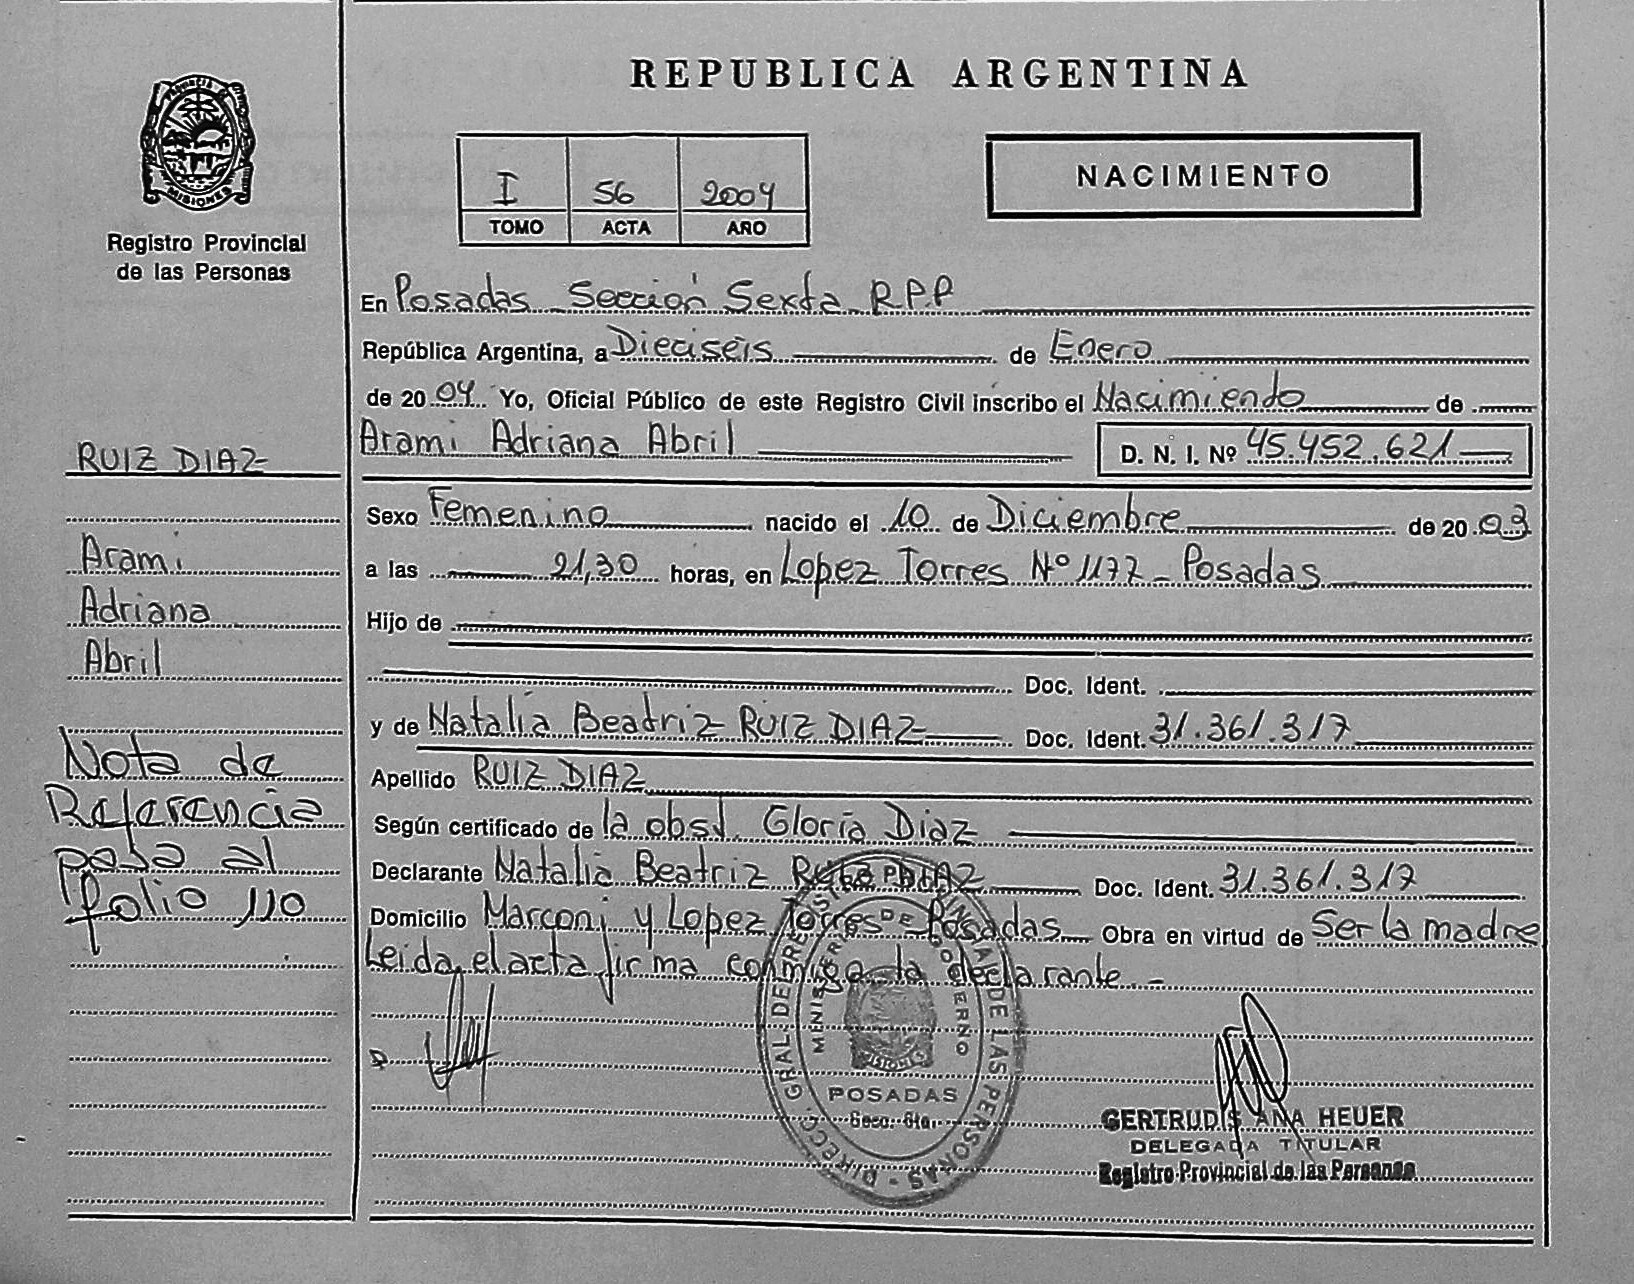 REPUBLICA ARGENTINA
PROVINCIA DE
MISIONES
Registro Provincial
de las Personas
I 56 2004
TOMO ACTA AÑO
NACIMIENTO
En Posadas Sección Sexta R.P.P
República Argentina, a Dieciséis de Enero
de 2004 Yo, Oficial Público de este Registro Civil inscribo el Nacimiento de
Arami Adriana Abril D. N. I. Nº 45.452.621
Sexo Femenino nacido el 10 de Diciembre de 2003
a las 21,30 horas, en Lopez Torres Nº 1177 - Posadas
Hijo de
Doc. Ident.
y de Natalia Beatriz RUIZ DIAZ Doc. Ident. 31.361.317
Apellido RUIZ DIAZ
Según certificado de la obst. Gloria Diaz
Declarante Natalia Beatriz RUIZ DIAZ Doc. Ident. 31.361.317
Domicilio Marconi y Lopez Torres - Posadas Obra en virtud de Ser la madre
Leida el acta firma conmigo la declarante.-
RUIZ DIAZ
Arami
Adriana
Abril
Nota de
Referencia
pasa al
folio 110
DIRECC. GRAL. DEL REGISTRO PROVINCIAL DE LAS PERSONAS
MINISTERIO DE GOBIERNO
MISIONES
POSADAS
Secc. 6ta.
GERTRUDIS ANA HEUER
DELEGADA TITULAR
Registro Provincial de las Personas